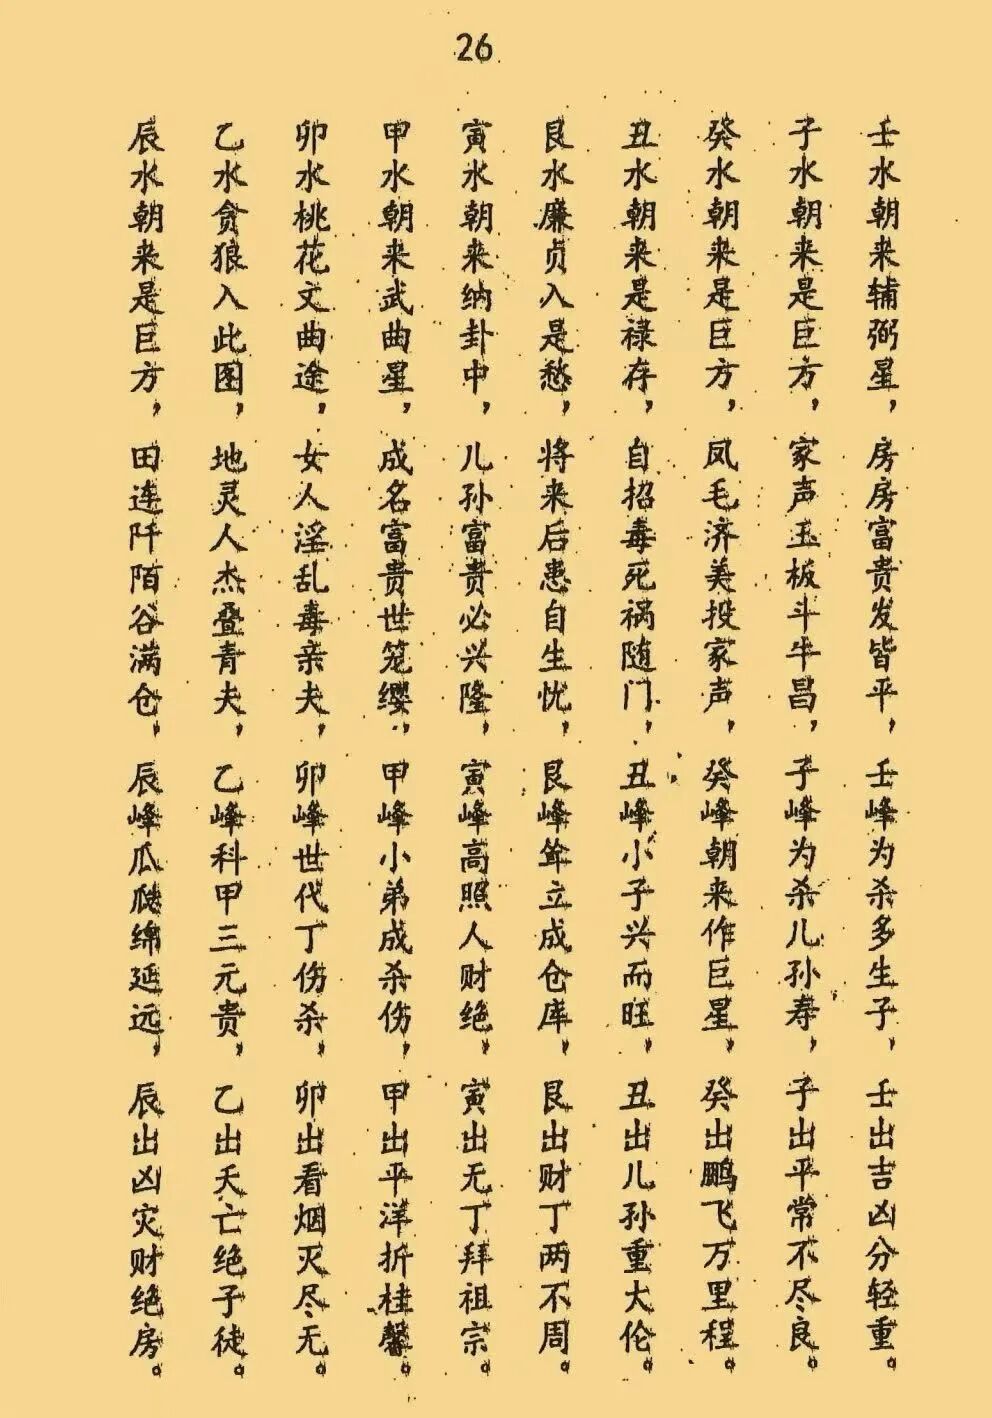 26
壬水朝来辅弼星，房房富贵发皆平，壬峰为杀多生子，壬出吉凶分轻重。
子水朝来是巨方，家声玉板斗牛昌，子峰为杀儿孙寿，子出平常不尽良。
癸水朝来是巨方，凤毛济美投家声，癸峰朝来作巨星，癸出鹏飞万里程。
丑水朝来是禄存，自招毒死祸随门，丑峰小子兴而旺，丑出儿孙重大伦。
艮水廉贞入是愁，将来后患自生忧，艮峰耸立成仓库，艮出财丁两不周。
寅水朝来纳卦中，儿孙富贵必兴隆，寅峰高照人财绝，寅出无丁拜祖宗。
甲水朝来武曲星，成名富贵世笼缨，甲峰小弟成杀伤，甲出平洋折桂馨。
卯水桃花文曲途，女人淫乱毒亲夫，卯峰世代丁伤杀，卯出看烟灭尽无。
乙水贪狼入此图，地灵人杰叠青夫，乙峰科甲三元贵，乙出夭亡绝子徒。
辰水朝来是巨方，田连阡陌谷满仓，辰峰瓜瓞绵延远，辰出凶灾财绝房。